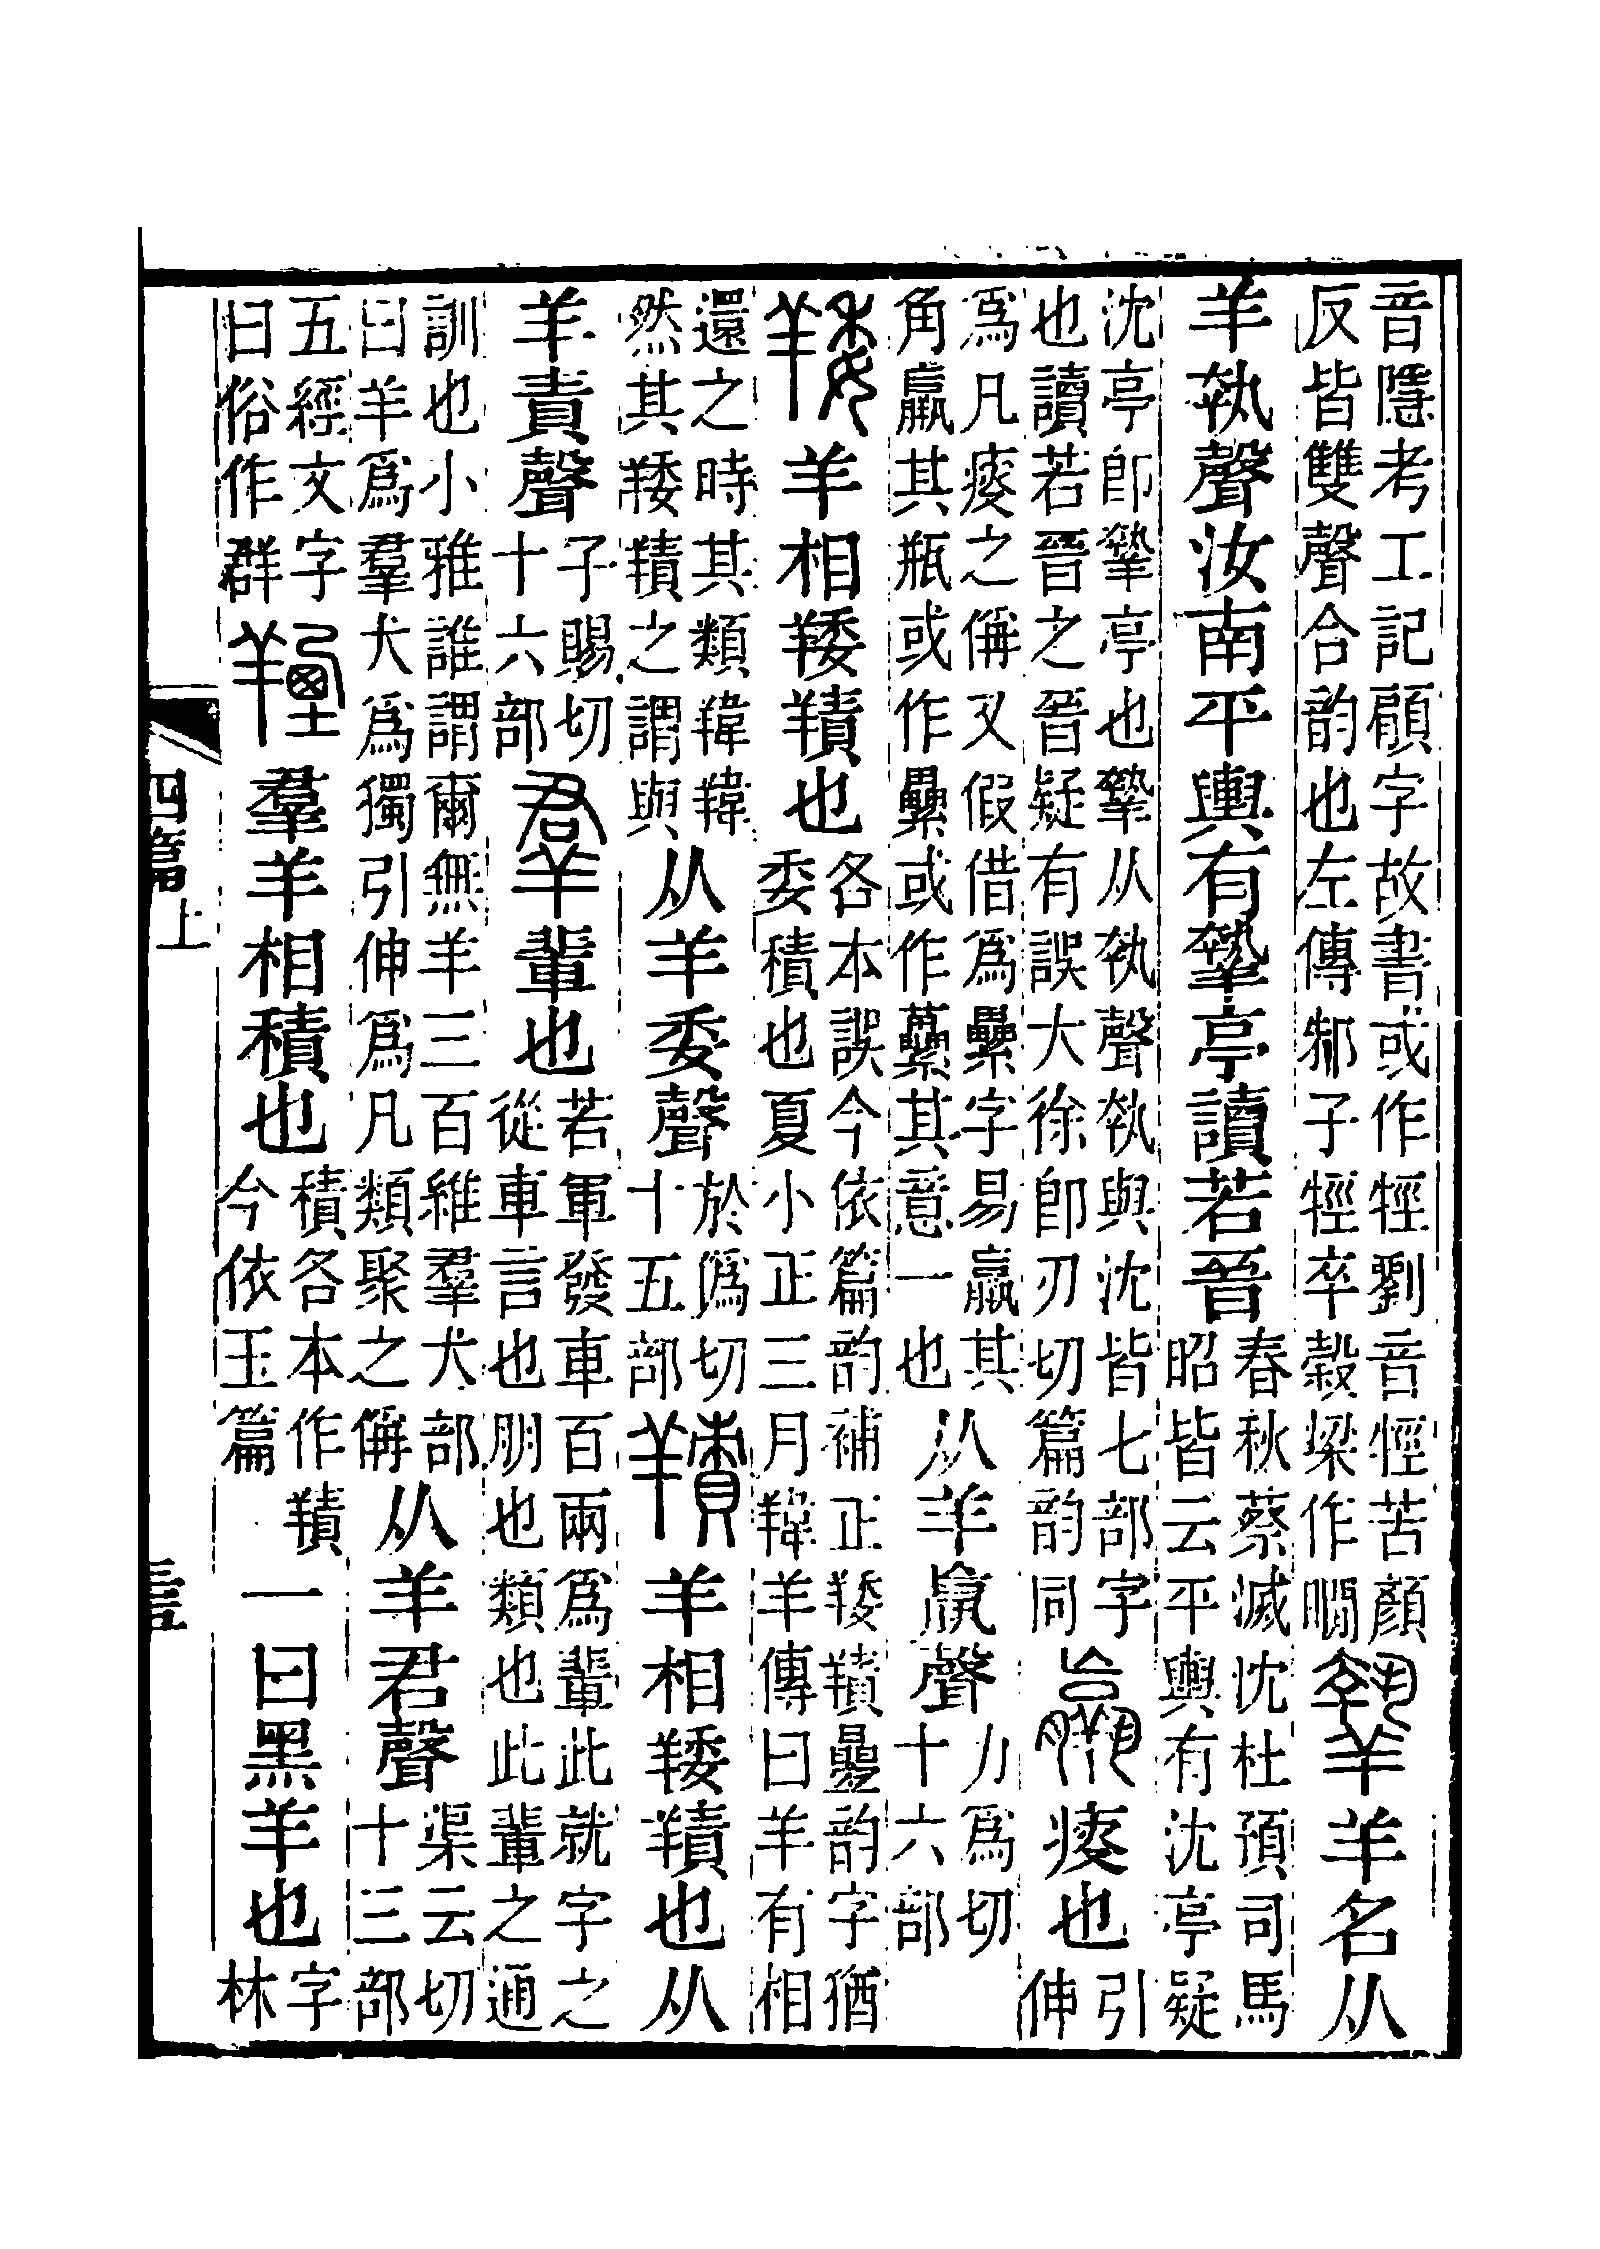 音隱考工記顧字故書或作牼劉音悭苦顏反皆雙聲合韵也左傳邾子牼卒穀梁作瞷羊名从
羊執聲汝南平輿有摯亭讀若晉春秋蔡滅沈杜預司馬昭皆云平輿有沈亭疑
沈亭卽摯亭也摯从執聲執與沈皆七部字也讀若晉之晉疑有誤大徐卽刃切篇韵同羸瘦也引伸
爲凡瘦之偁又假借爲纍字易羸其角羸其瓶或作纍或作虆其意一也从羊𣎆聲力爲切十六部
䍴羊相䍴𦎣也各本誤今依篇韵補正䍴𦎣曡韵字猶委積也夏小正三月羊傳曰羊有相
還之時其類然其䍴𦎣之謂與从羊委聲於僞切十五部𦎣羊相䍴𦎣也从
羊責聲子賜切十六部羣輩也若軍發車百兩爲輩此就字之從車言也朋也類也此輩之通
訓也小雅誰謂爾無羊三百維羣犬部曰羊爲羣犬爲獨引伸爲凡類聚之偁从羊君聲渠云切十三部
五經文字曰俗作群羣羊相積也積各本作𦎣今依玉篇一曰黑羊也字林
四篇上